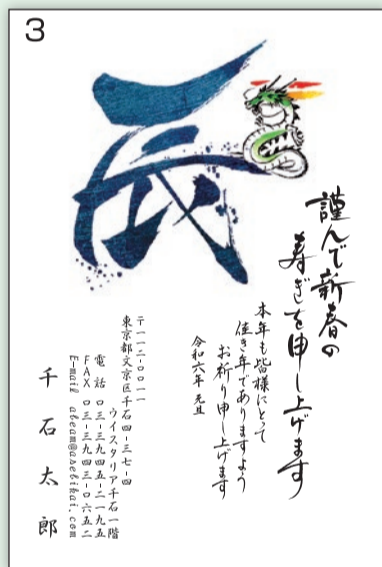 3
辰
謹んで新春の
寿ぎを申し上げます
本年も皆様にとって
佳き年でありますよう
お祈り申し上げます
令和六年 元旦
〒一一二-〇〇一一
東京都文京区千石四-三七-四
ウイスタリア千石一階
電話 〇三-三九四五-二一九五
FAX 〇三-三九四三-〇六五二
E-mail abeam@asebikai.com
千石太郎